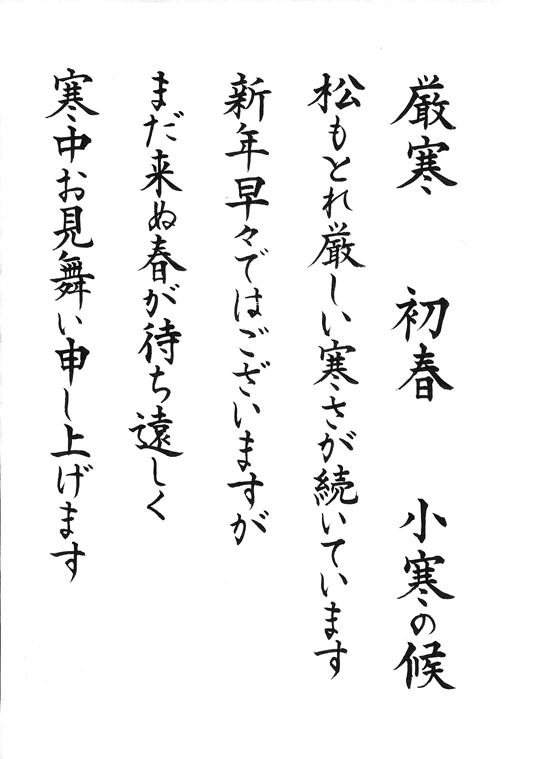 厳寒　初春　小寒の候
松もとれ厳しい寒さが続いています
新年早々ではございますが
まだ来ぬ春が待ち遠しく
寒中お見舞い申し上げます